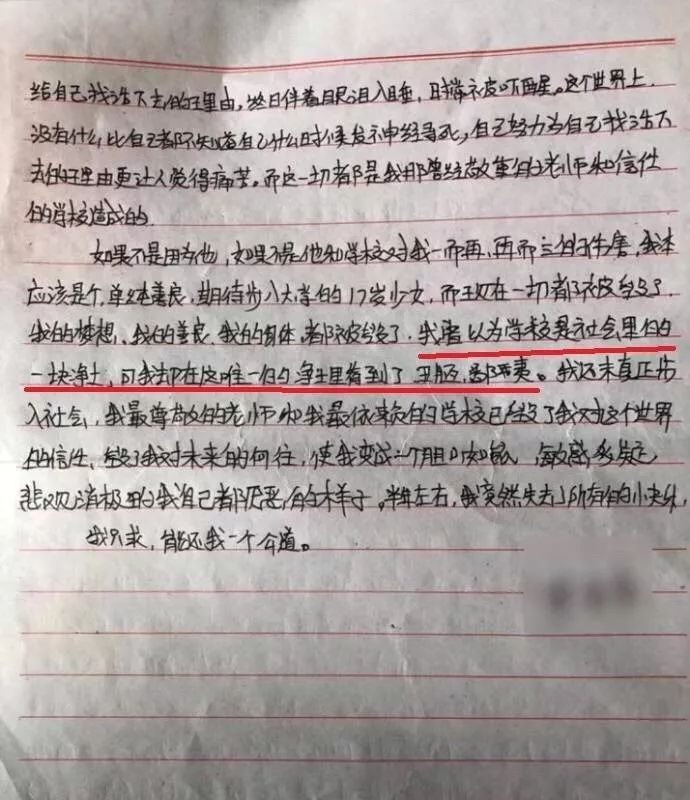 给自己找活下去的理由，终日伴着眼泪入睡，时常被吓醒。这个世界上
没有什么比自己都不知道自己什么时候发神经寻死，自己努力为自己找活下
去的理由更让人觉得痛苦。而这一切都是我那曾经敬重的老师和信任
的学校造成的。
如果不是因为他，如果不是他和学校对我一而再，再而三的伤害，我本
应该是个单纯善良，期待步入大学的17岁少女，而现在一切都被毁了
我的梦想、我的善良、我的身体，都被毁了。我曾以为学校是社会里的
一块净土，可我却在这唯一的净土里看到了丑陋，龌龊。我还未真正步
入社会，我最尊敬的老师和我最依赖的学校已毁了我对这个世界
的信任，毁了我对未来的向往，使我变成一个胆小如鼠，敏感多疑
悲观消极的我自己都厌恶的样子。半年左右，我突然失去了所有的小美好，
我只求，能还我一个公道。